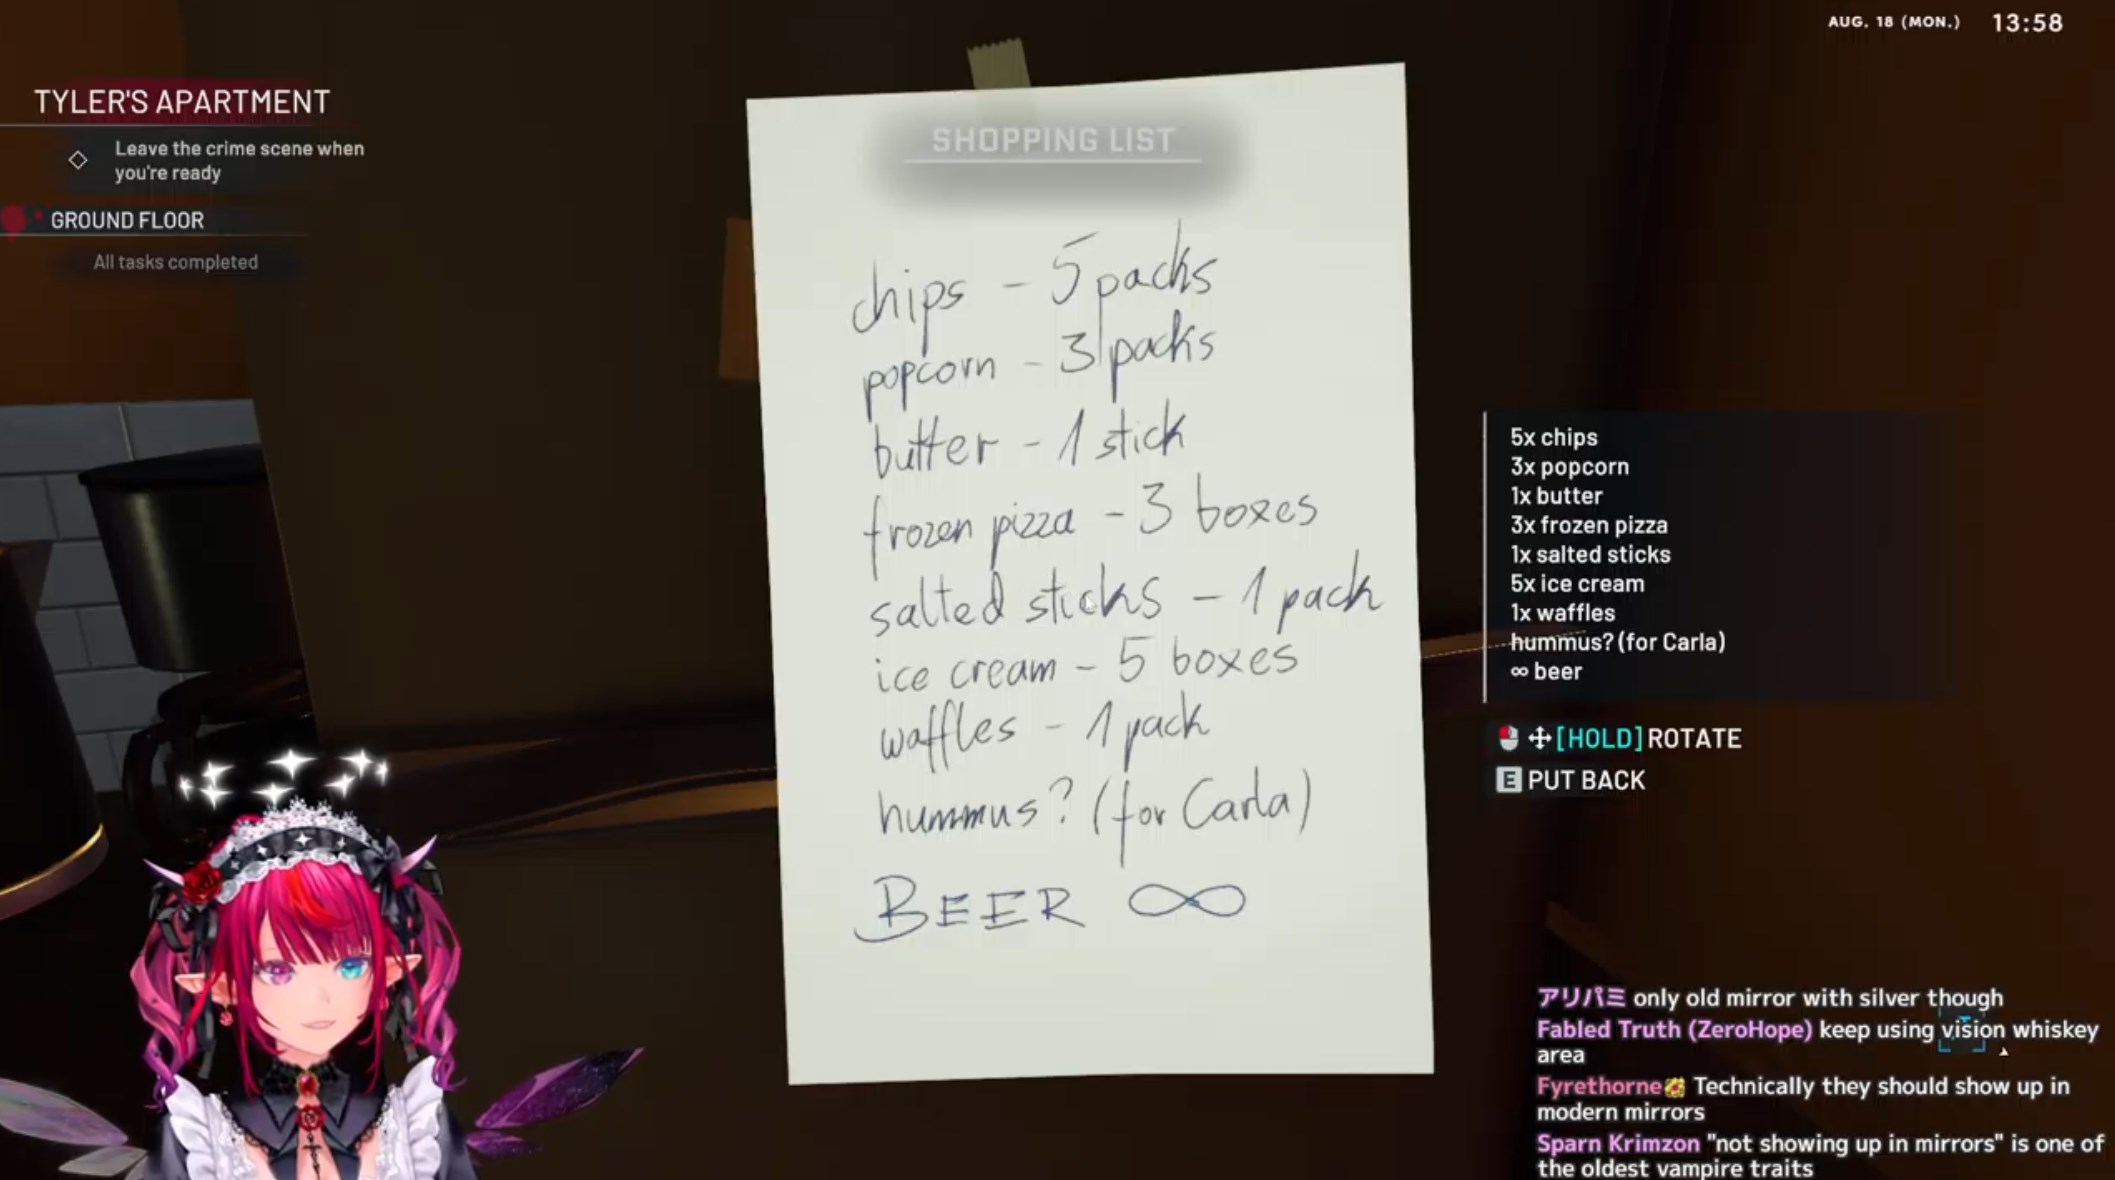 AUG. 18 (MON.) 13:58
TYLER'S APARTMENT
Leave the crime scene when
you're ready
GROUND FLOOR
All tasks completed
SHOPPING LIST
chips - 5 packs
popcorn - 3 packs
butter - 1 stick
frozen pizza - 3 boxes
salted sticks - 1 pack
ice cream - 5 boxes
waffles - 1 pack
hummus? (for Carla)
BEER ∞
5x chips
3x popcorn
1x butter
3x frozen pizza
1x salted sticks
5x ice cream
1x waffles
hummus? (for Carla)
∞ beer
[HOLD] ROTATE
E PUT BACK
アリパミ only old mirror with silver though
Fabled Truth (ZeroHope) keep using vision whiskey
area
Fyrethorne Technically they should show up in
modern mirrors
Sparn Krimzon "not showing up in mirrors" is one of
the oldest vampire traits